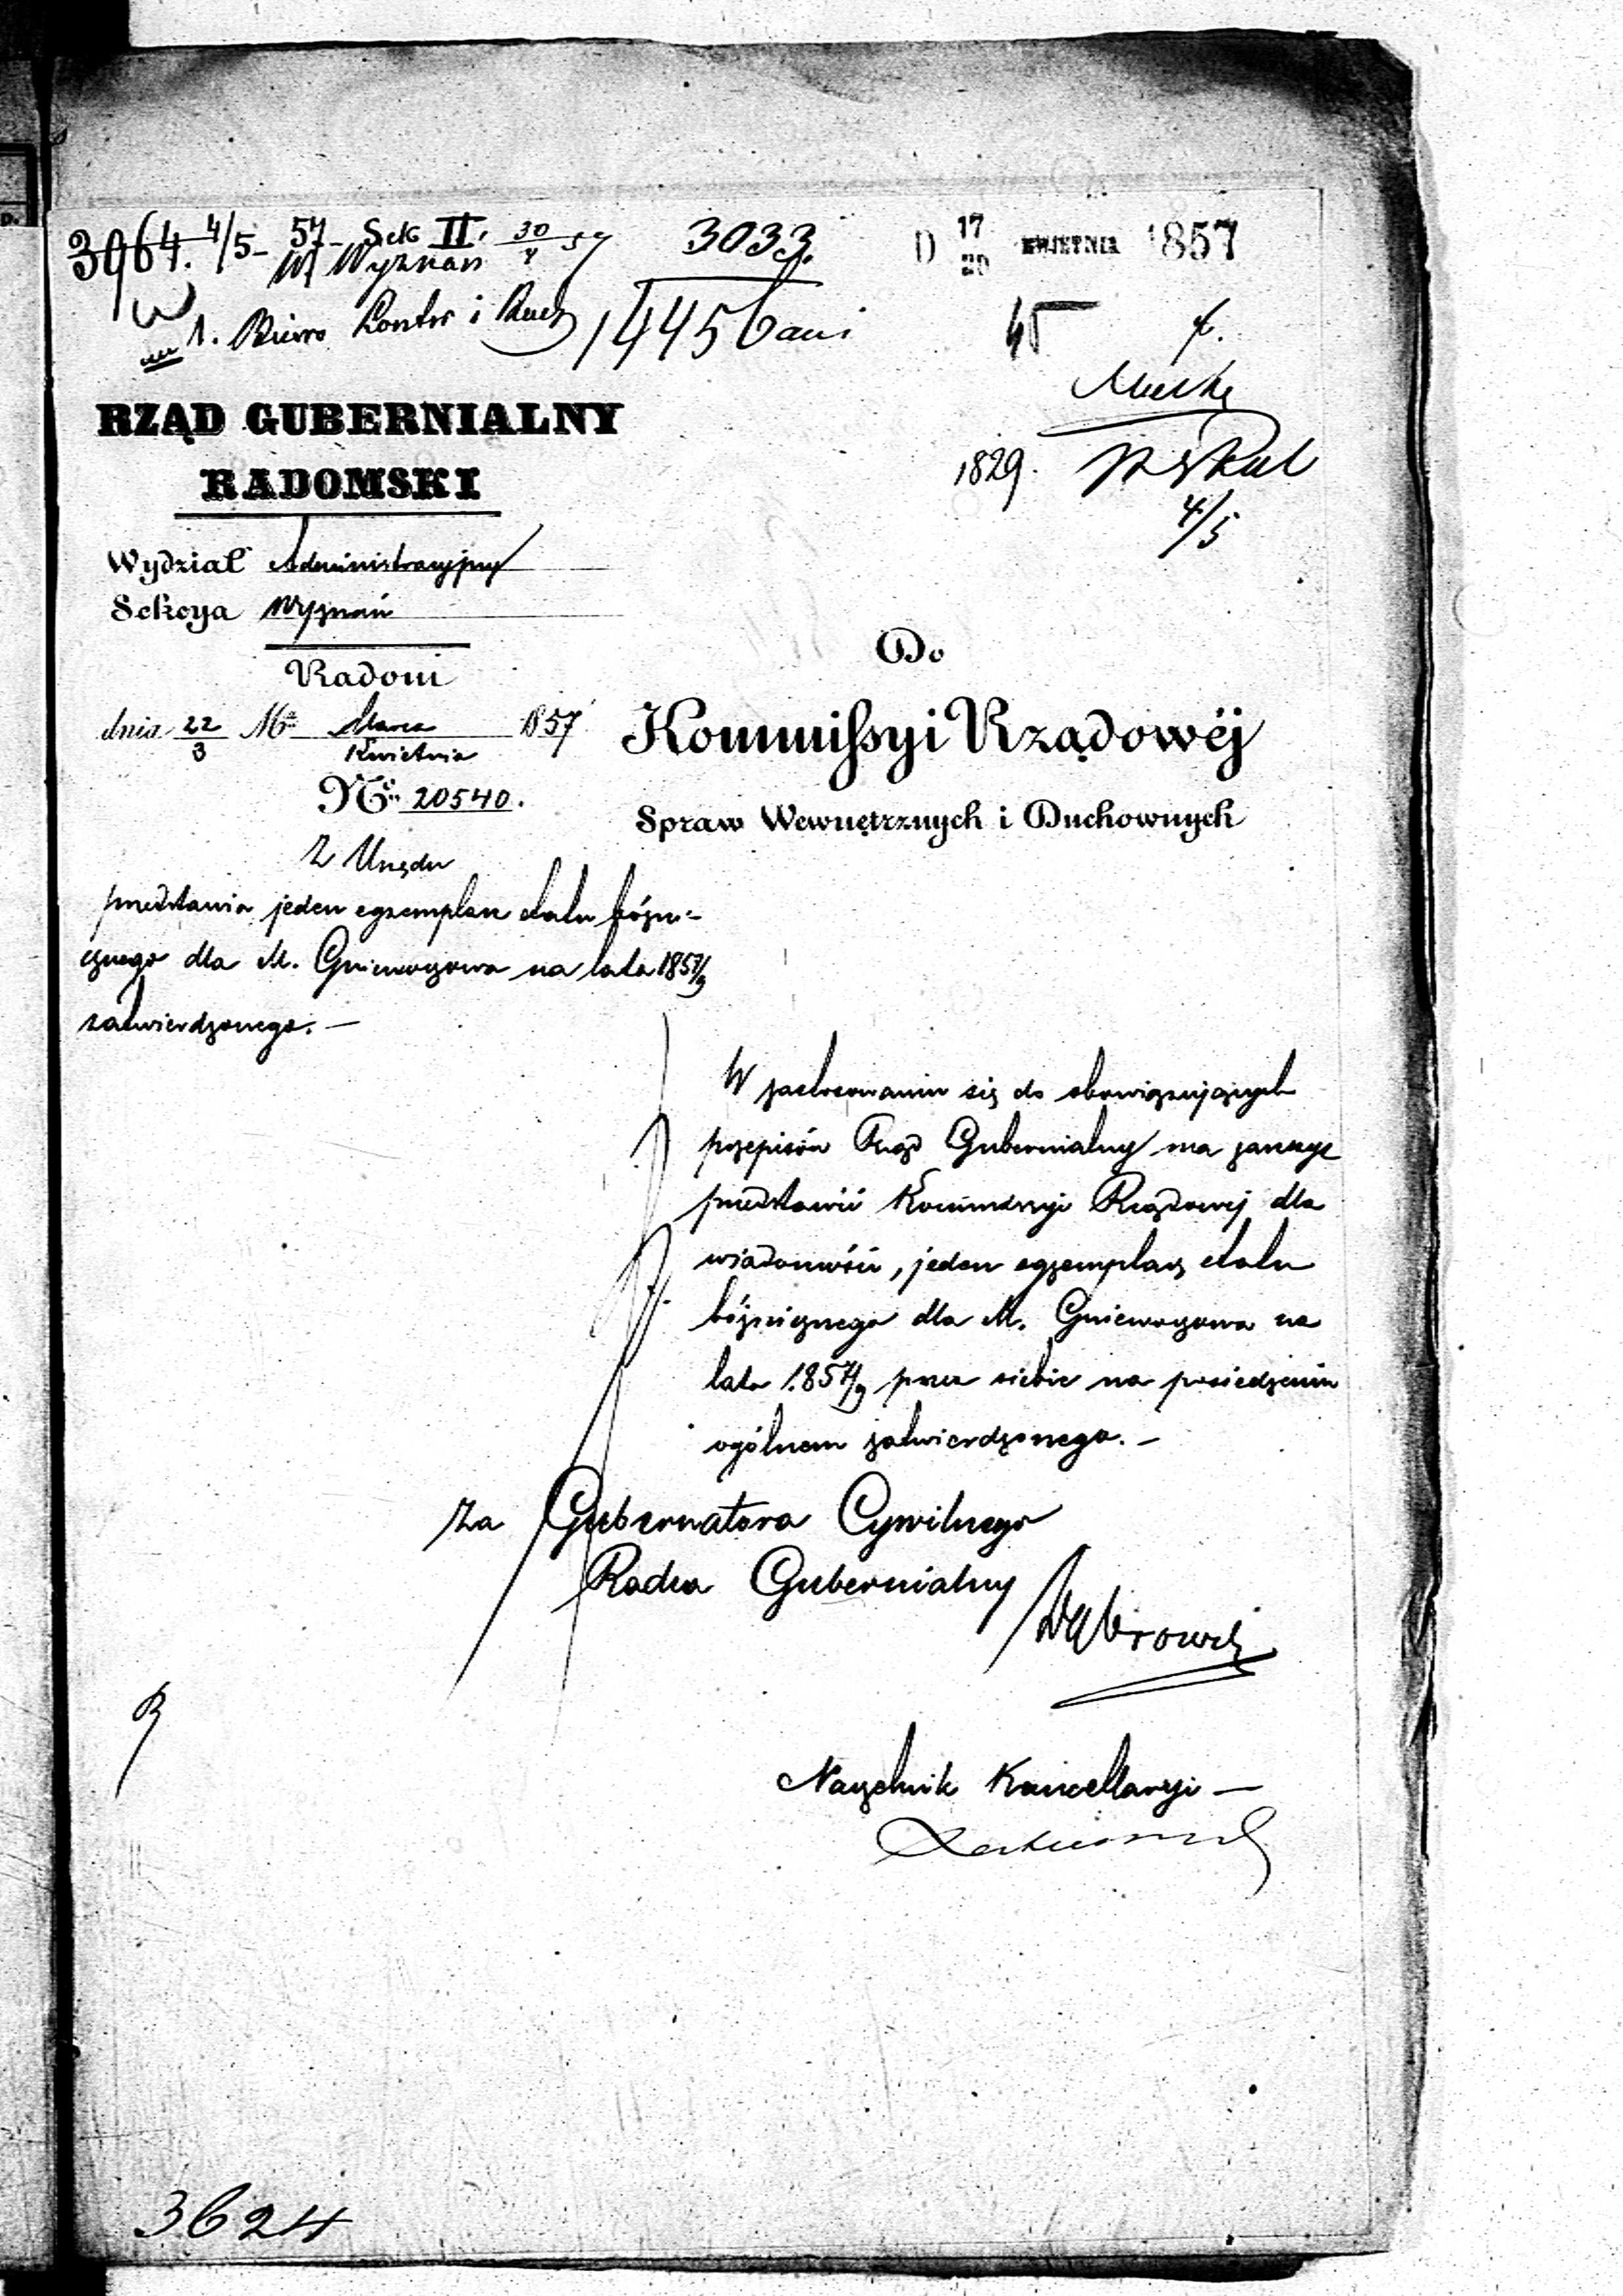 3964. 4/5 - 57 Sek II. 30/4 57 3033. D 17/29 KWIETNIA 1857
W Wyznań
1. Biuro Kontr i Rach 14456
45
1829.
4/5
RZĄD GUBERNIALNY
RADOMSKI
Wydział Administracyjny
Sekcya Wyznań
Radom
dnia 22/3 Mca Marca/Kwietnia 1857
No 20540.
Z Urzędu
przedstawia jeden egzemplarz etatu bóżni-
cznego dla M. Gniewoszowa na lata 1857/9
zatwierdzonego. —
Do
Kommissyi Rządowéj
Spraw Wewnętrznych i Duchownych
W zastosowaniu się do obowiązujących
przepisów Rząd Gubernialny ma zaszczyt
przedstawić Kommissyi Rządowej dla
wiadomości, jeden egzemplarz etatu
bóżnicznego dla M. Gniewoszowa na
lata 1857/9 przez siebie na posiedzeniu
ogólnem zatwierdzonego. —
Za Gubernatora Cywilnego
Radca Gubernialny
Dąbrowski
Naczelnik Kancellaryi —
3624